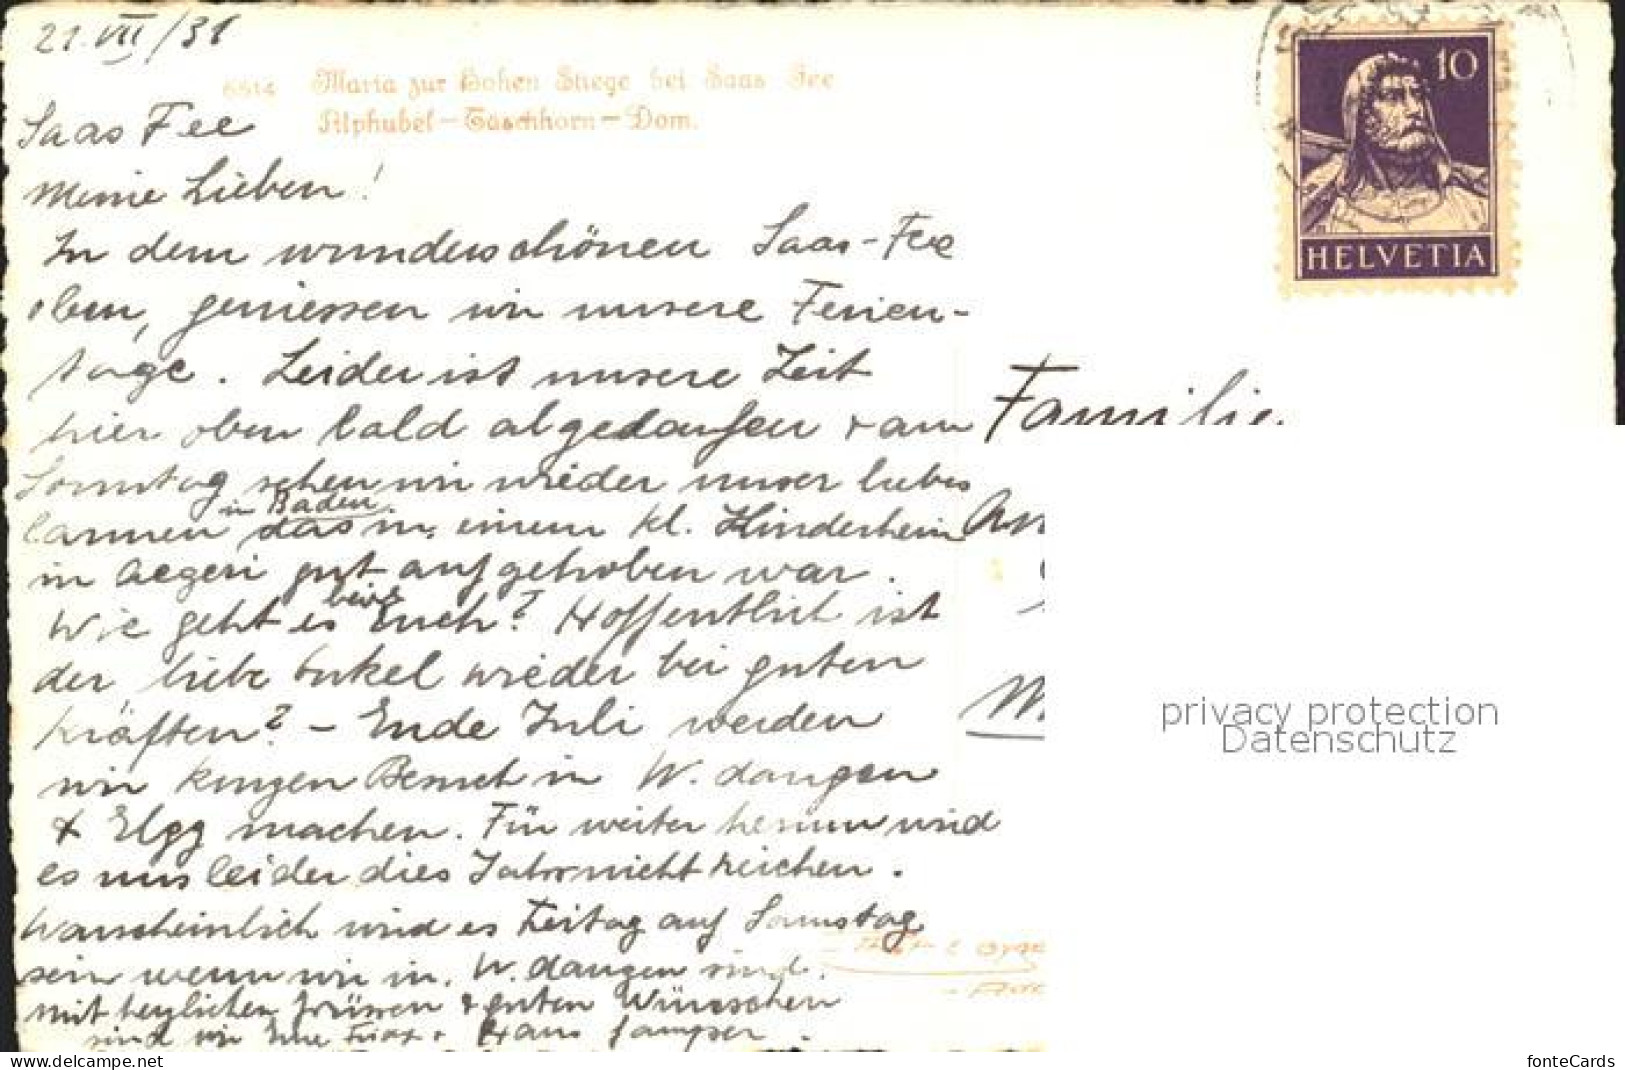 21. VII/31
6514 Maria zur Hohen Stiege bei Saas Fee
Alphubel - Täschhorn - Dom.
10
HELVETIA
Saas Fee
Meine Lieben!
In dem wunderschönen Saas-Fee
oben, geniessen wir unsere Ferien-
tage. Leider ist unsere Zeit
hier oben bald abgelaufen + am
Sonntag sehen wir wieder unser liebes
in Baden
das in einem kl. Kinderheim
in Aegeri gut aufgehoben war.
Wie geht es Euch? Hoffentlich ist
der liebe Onkel wieder bei guten
Kräften? - Ende Juli werden
wir kurzen Besuch in W. dangen
+ Elgg machen. Für weiter herum wird
es uns leider dies Jahr nicht reichen.
Warscheinlich wird es Freitag auf Samstag
sein wenn wir in W. dangen sind.
Mit herzlichen Grüssen + guten Wünschen
sind wir Eure + Hans
Familie
privacy protection
Datenschutz
fonteCards